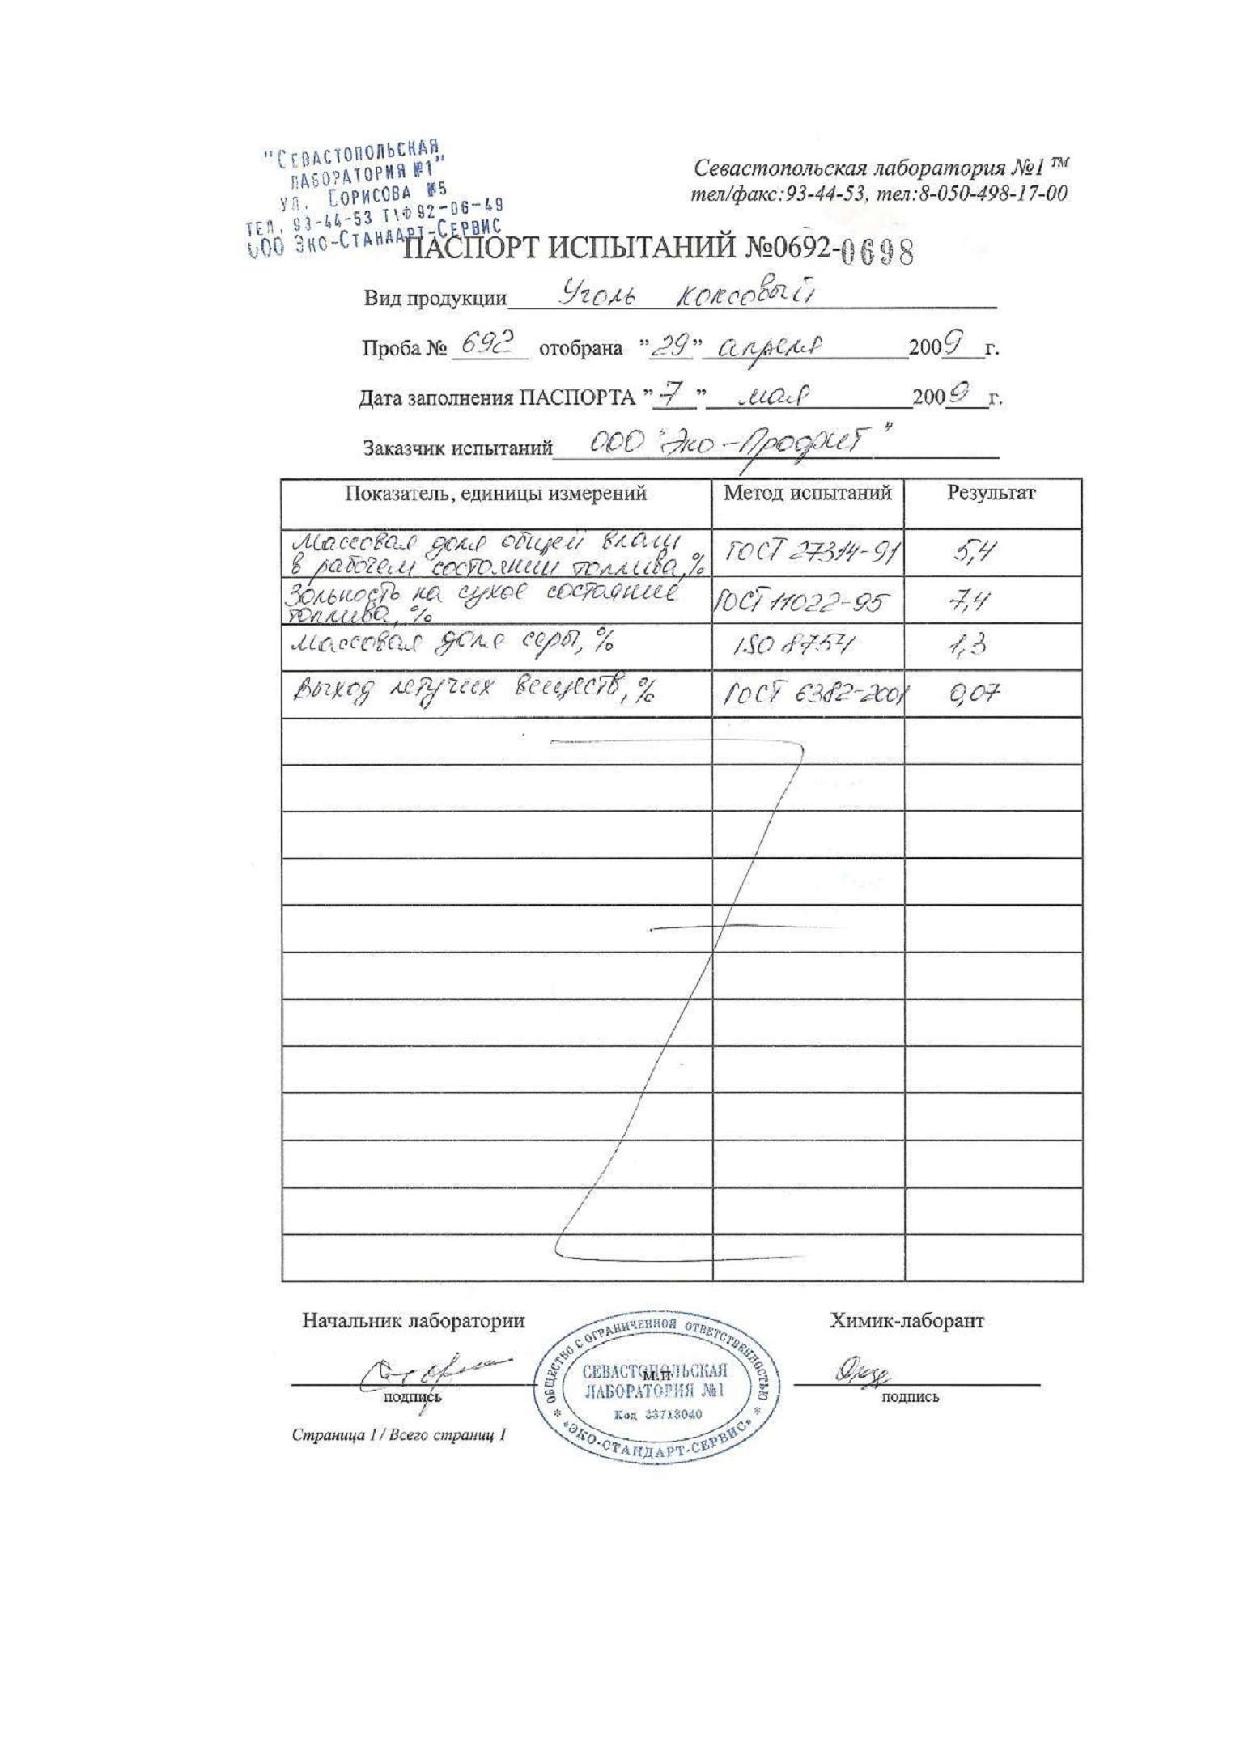 "СЕВАСТОПОЛЬСКАЯ
ЛАБОРАТОРИЯ №1"
УЛ. БОРИСОВА №5
ТЕЛ. 93-44-53 Т\Ф 92-06-49
ООО ЭКО-СТАНДАРТ-СЕРВИС
Севастопольская лаборатория №1 ™
тел/факс:93-44-53, тел:8-050-498-17-00
ПАСПОРТ ИСПЫТАНИЙ №0692-0698
Вид продукции Уголь коксовый
Проба № 692 отобрана "29" апреля 2009 г.
Дата заполнения ПАСПОРТА "7" мая 2009 г.
Заказчик испытаний ООО "Эко-Профит"
Показатель, единицы измерений Метод испытаний Результат
Массовая доля общей влаги
в рабочем состоянии топлива, % ГОСТ 27314-91 5,4
Зольность на сухое состояние
топлива, % ГОСТ 11022-95 7,4
Массовая доля серы, % ISO 8754 1,3
Выход летучих веществ, % ГОСТ 6382-2001 0,07
Начальник лаборатории Химик-лаборант
ОБЩЕСТВО С ОГРАНИЧЕННОЙ ОТВЕТСТВЕННОСТЬЮ
СЕВАСТОПОЛЬСКАЯ
М.П
ЛАБОРАТОРИЯ №1
Код 33713040
* «ЭКО-СТАНДАРТ-СЕРВИС» *
подпись подпись
Страница 1 / Всего страниц 1